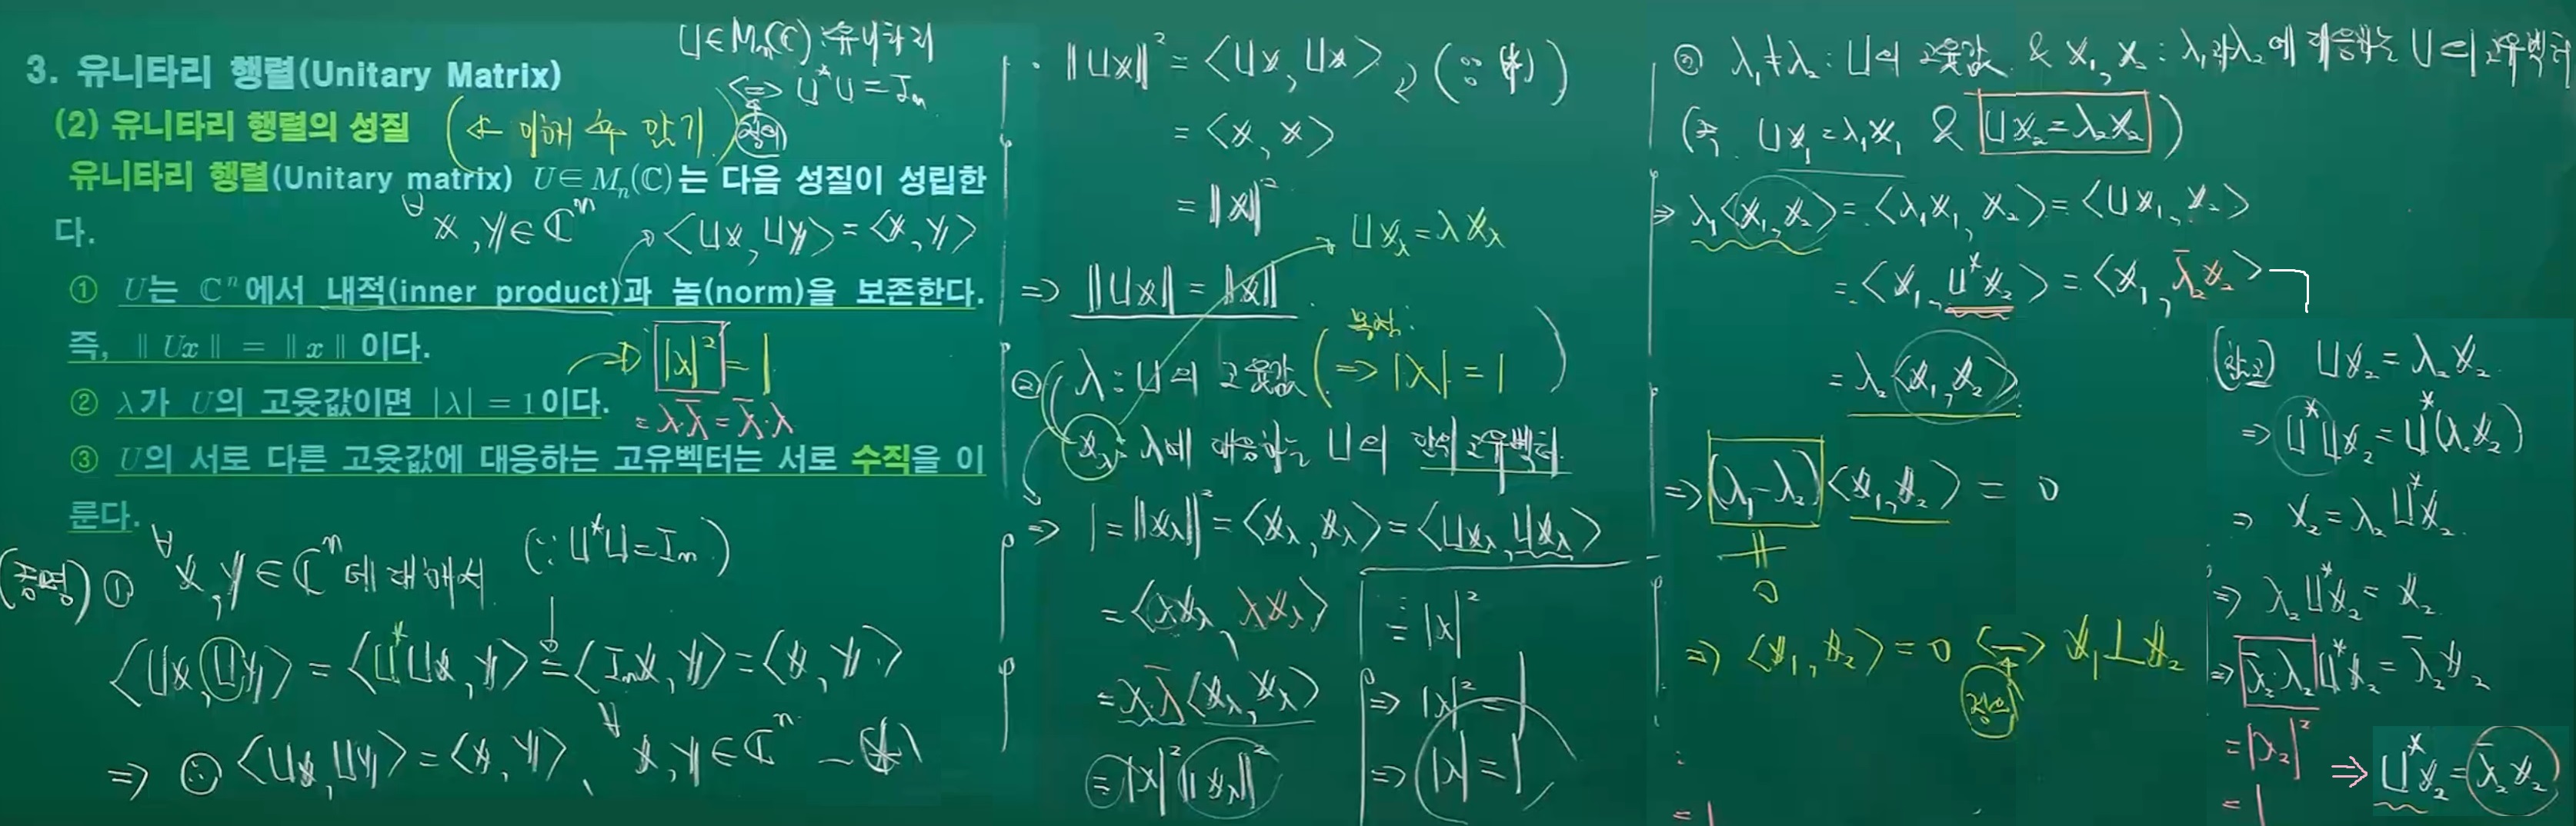 3. 유니타리 행렬(Unitary Matrix)
U∈Mₙ(ℂ):유니타리
⟺ U*U=Iₙ
정의
(2) 유니타리 행렬의 성질
(← 이해 후 암기)
유니타리 행렬(Unitary matrix) U∈Mₙ(ℂ)는 다음 성질이 성립한
다.
∀x, y∈ℂⁿ
⟨Ux, Uy⟩=⟨x, y⟩
① U는 ℂⁿ에서 내적(inner product)과 놈(norm)을 보존한다.
즉, ‖Ux‖ = ‖x‖이다.
→ |λ|²=1
② λ가 U의 고윳값이면 |λ|=1이다.
=λ·λ̄=λ̄·λ
③ U의 서로 다른 고윳값에 대응하는 고유벡터는 서로 수직을 이
룬다.
(증명) ① ∀x, y∈ℂⁿ에 대해서 (∵U*U=Iₙ)
⟨Ux, Uy⟩ = ⟨U*Ux, y⟩ = ⟨Iₙx, y⟩=⟨x, y⟩
⇒ ∴ ⟨Ux, Uy⟩=⟨x, y⟩, ∀x, y∈ℂⁿ -(*)
‖Ux‖²=⟨Ux, Ux⟩ (∵(*))
=⟨x, x⟩
=‖x‖²
⇒ ‖Ux‖=‖x‖
Ux_λ=λx_λ
② λ:U의 고윳값 (⇒|λ|=1)
x_λ: λ에 대응하는 U의 단위 고유벡터
⇒ 1=‖x_λ‖²=⟨x_λ, x_λ⟩=⟨Ux_λ, Ux_λ⟩
=⟨λx_λ, λx_λ⟩
=λ·λ̄⟨x_λ, x_λ⟩
=|λ|²‖x_λ‖²
=|λ|²
⇒ |λ|²=1
⇒ |λ|=1
③ λ₁≠λ₂: U의 고윳값 & x₁, x₂: λ₁과 λ₂에 대응하는 U의 고유벡터
(즉, Ux₁=λ₁x₁ & Ux₂=λ₂x₂)
⇒ λ₁⟨x₁, x₂⟩=⟨λ₁x₁, x₂⟩=⟨Ux₁, x₂⟩
=⟨x₁, U*x₂⟩=⟨x₁, λ̄₂x₂⟩
=λ₂⟨x₁, x₂⟩
⇒ (λ₁-λ₂)⟨x₁, x₂⟩ = 0
≠
0
⇒ ⟨x₁, x₂⟩=0 ⟺ x₁⊥x₂
정의
(참고) Ux₂=λ₂x₂
⇒ U*Ux₂=U*(λ₂x₂)
⇒ x₂=λ₂U*x₂
⇒ λ₂U*x₂=x₂
⇒ λ̄₂·λ₂U*x₂=λ̄₂x₂
=|λ₂|²
=1
⇒ U*x₂=λ̄₂x₂
=1